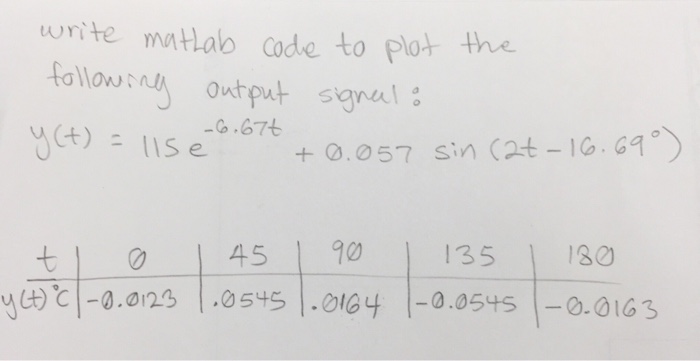 write matlab code to plot the
following output signal:
y(t) = 115e^-6.67t + 0.057 sin (2t - 16.69°)
t | 0 | 45 | 90 | 135 | 180
y(t)°C | -0.0123 | .0545 | .0164 | -0.0545 | -0.0163